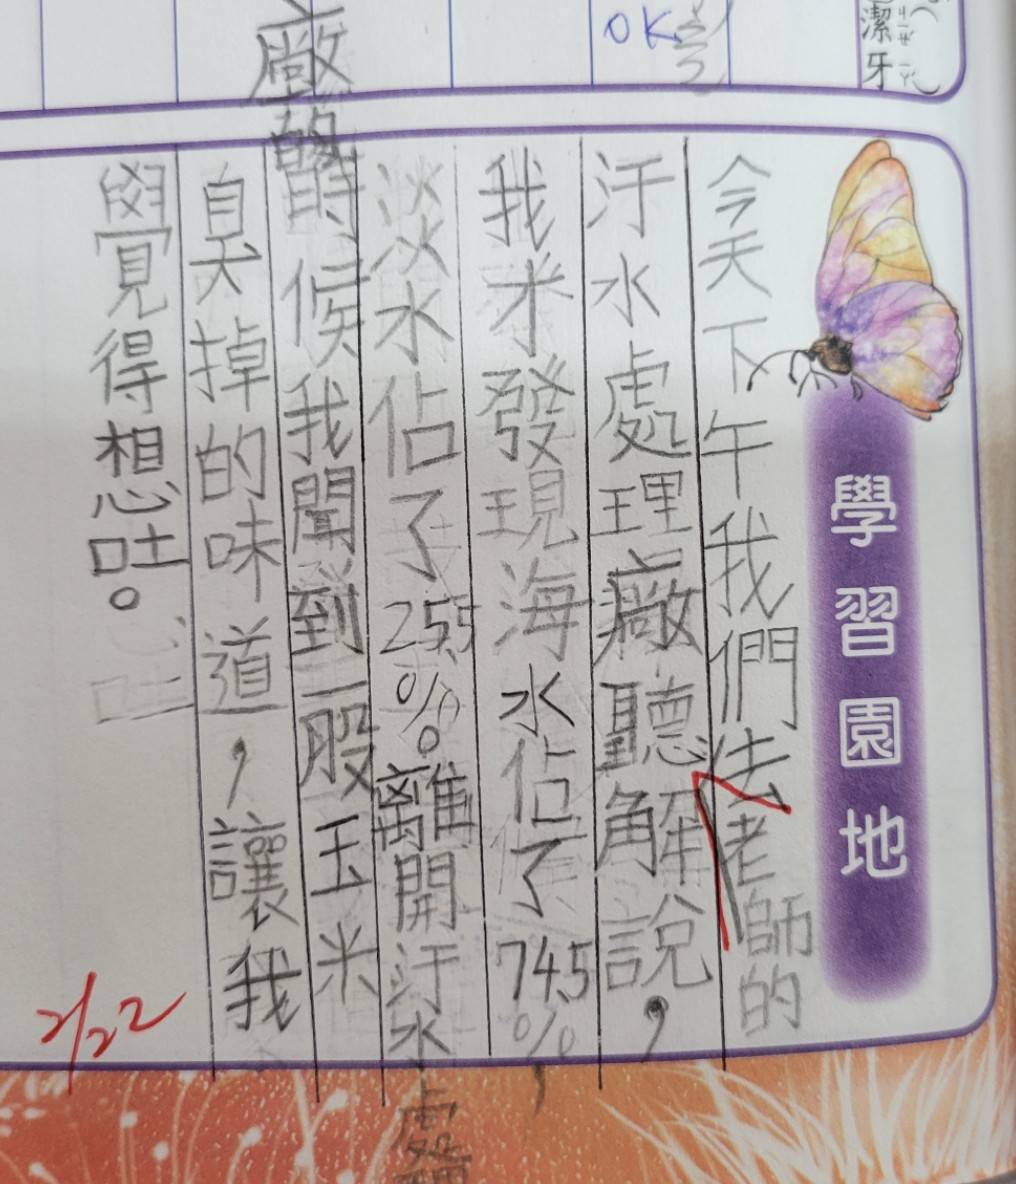 潔牙
OK
學習園地
今天下午我們去老師的
汙水處理廠聽解說，
我米發現海水佔了74.5%，
淡水佔了25.5%。離開汙水處理
廠的時候我聞到一股玉米
臭掉的味道，讓我
覺得想吐。
2/22